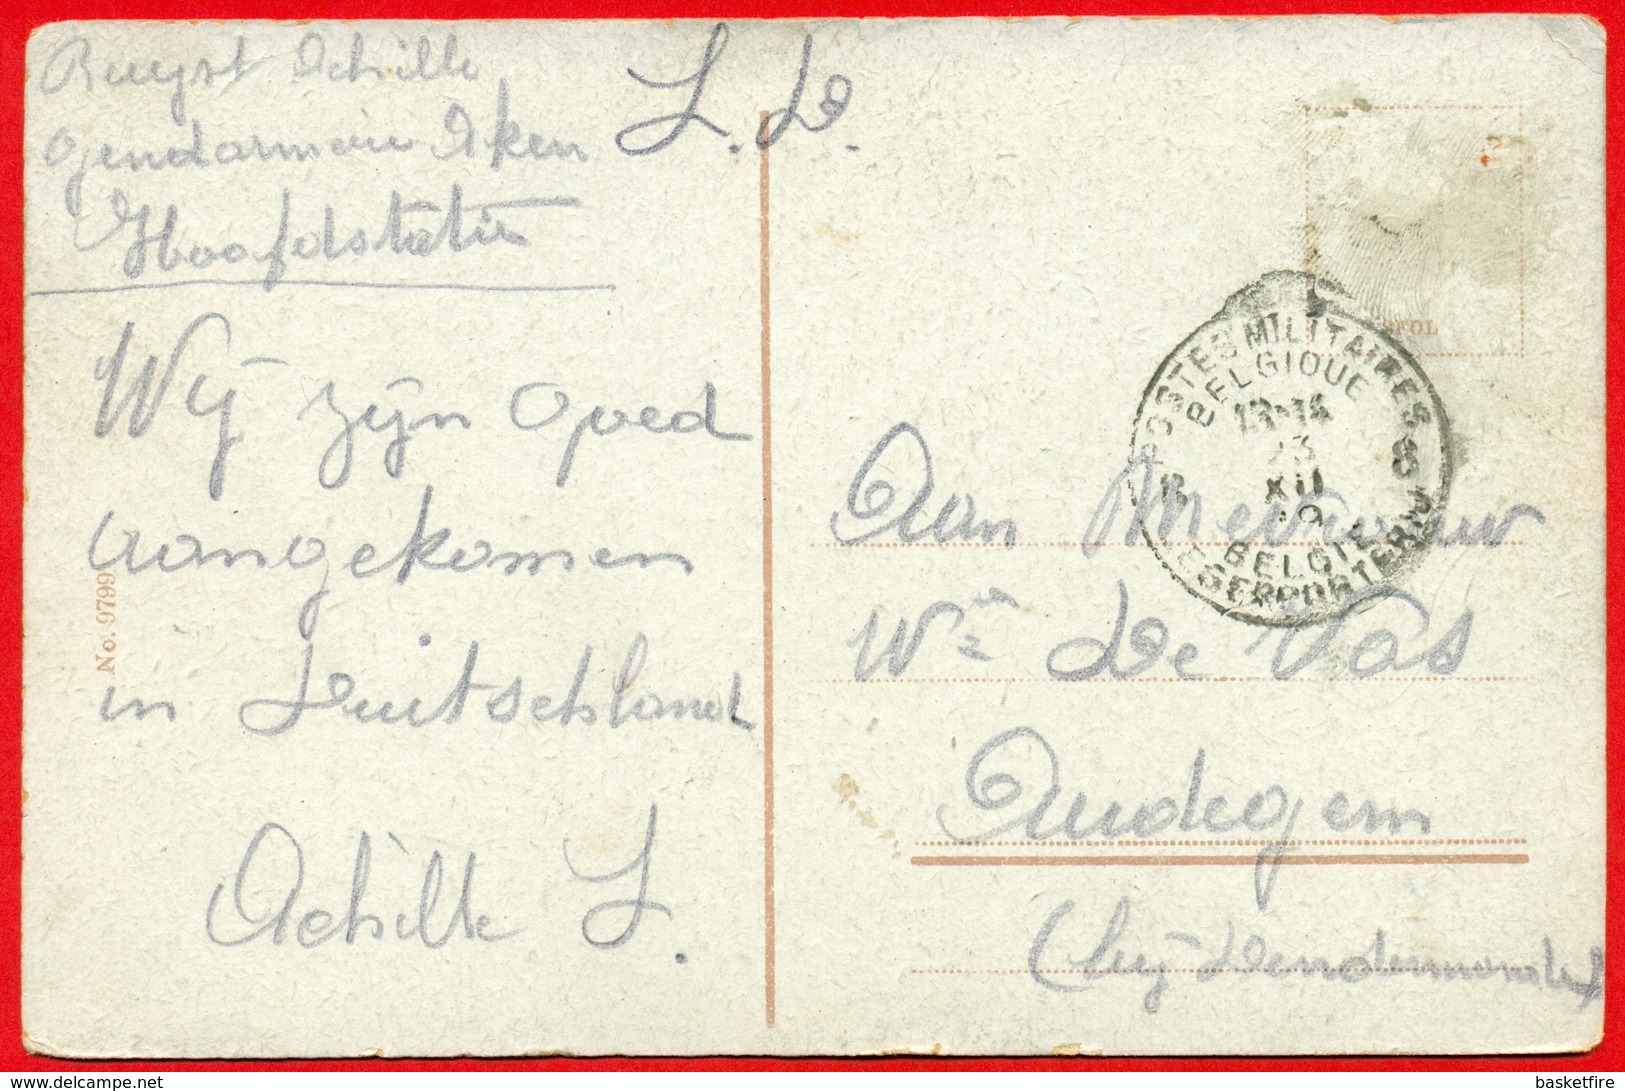 Ruyst Achille
Gendarmerie Aken
Hoofdstatie
Wij zijn goed
aangekomen
in Duitschland
Achille
No. 9799
POSTES MILITAIRES
BELGIQUE
13-14
23
XII
19
BELGIE
LEGERPOSTERIJ
8 8
Aan Mevrouw
We De Vos
Oudegem
(bij Dendermonde)
www.delcampe.net
basketfire